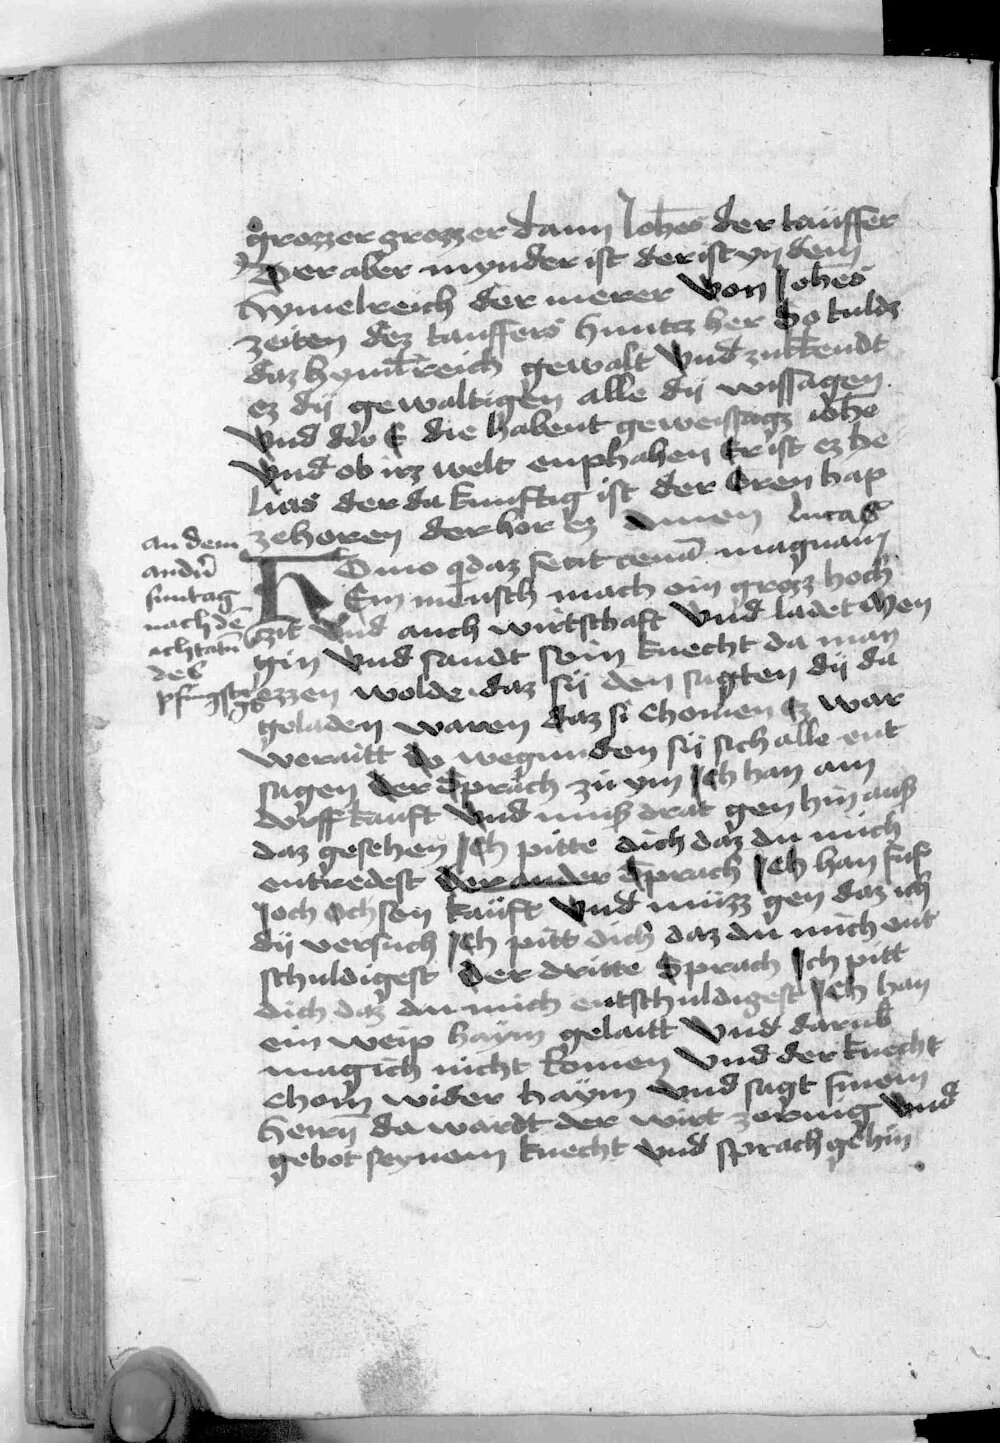 grozzer grozzer dann Joh̄es der täuffer
Der aber mynder ist der ist yn dem
hymelreich der merer Von Joh̄es
zeiten dez tauffers huntz her So duldz
daz hymelreich gewalt Vnd zukkendt
ez dÿ gewaltigen alle dÿ wissagen
Vnd dÿ E die habent geweissagz ioh̄e
Vnd ob irz welt enphahen Er ist ez he
lias der da kunftig ist der Oren hap
zehoren der hor ez Amen Lucas
an dem
andn̄
suntag
nach dē
achtatn̄
des
pfingstags
HOmo qdaz fecit cenā magnam
Ein mensch mach ein grozz hoch
zit Vnd auch wirtschaft Vnd ladet Men
gin Vnd sandt sein knecht da man
ezzen wolde daz sÿ den sagten dÿ da
geladen waren daz si chomen Ez war
weraitt do wegunden sÿ sich alle ent
sagen der Sprach zu ym Ich han am
dorff kauft Vnd muß drat gen hin auß
daz gesehen Ich pitte dich daz du mich
entredest der ander Sprach Ich han fuf
Joch Ochsen käuft Vnd müzz gen daz ich
dÿ versuch Ich pitt dich daz du mich ent
schuldigest Der dritte Sprach Ich pitt
dich daz du mich entschuldigest Ich han
ein weip haym gelaitt Vnd darub̄
mag ich nicht komen Vnd der knecht
chom wider haÿm Vnd sagt sinem
herrn̄ da wardt der wirt zornig Vnd
gebot seynem knecht Vnd sprach ge hin